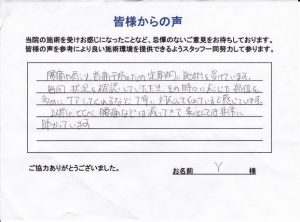 皆様からの声
当院の施術を受けお感じになったことなど、忌憚のないご意見をお待ちしております。
皆様の声を参考により良い施術環境を提供できるようスタッフ一同努力して参ります。
腰痛や肩こり、首痛予防のため定期的に施術を受けています。
毎回 状況を確認していただき、その時に応じた部位を
多めにケアしてくれるなど丁寧に対応してくれていると感じています。
以前にくらべ腰痛などは減ってきて私としては非常に
助かっています
ご協力ありがとうございました。
お名前 Y 様